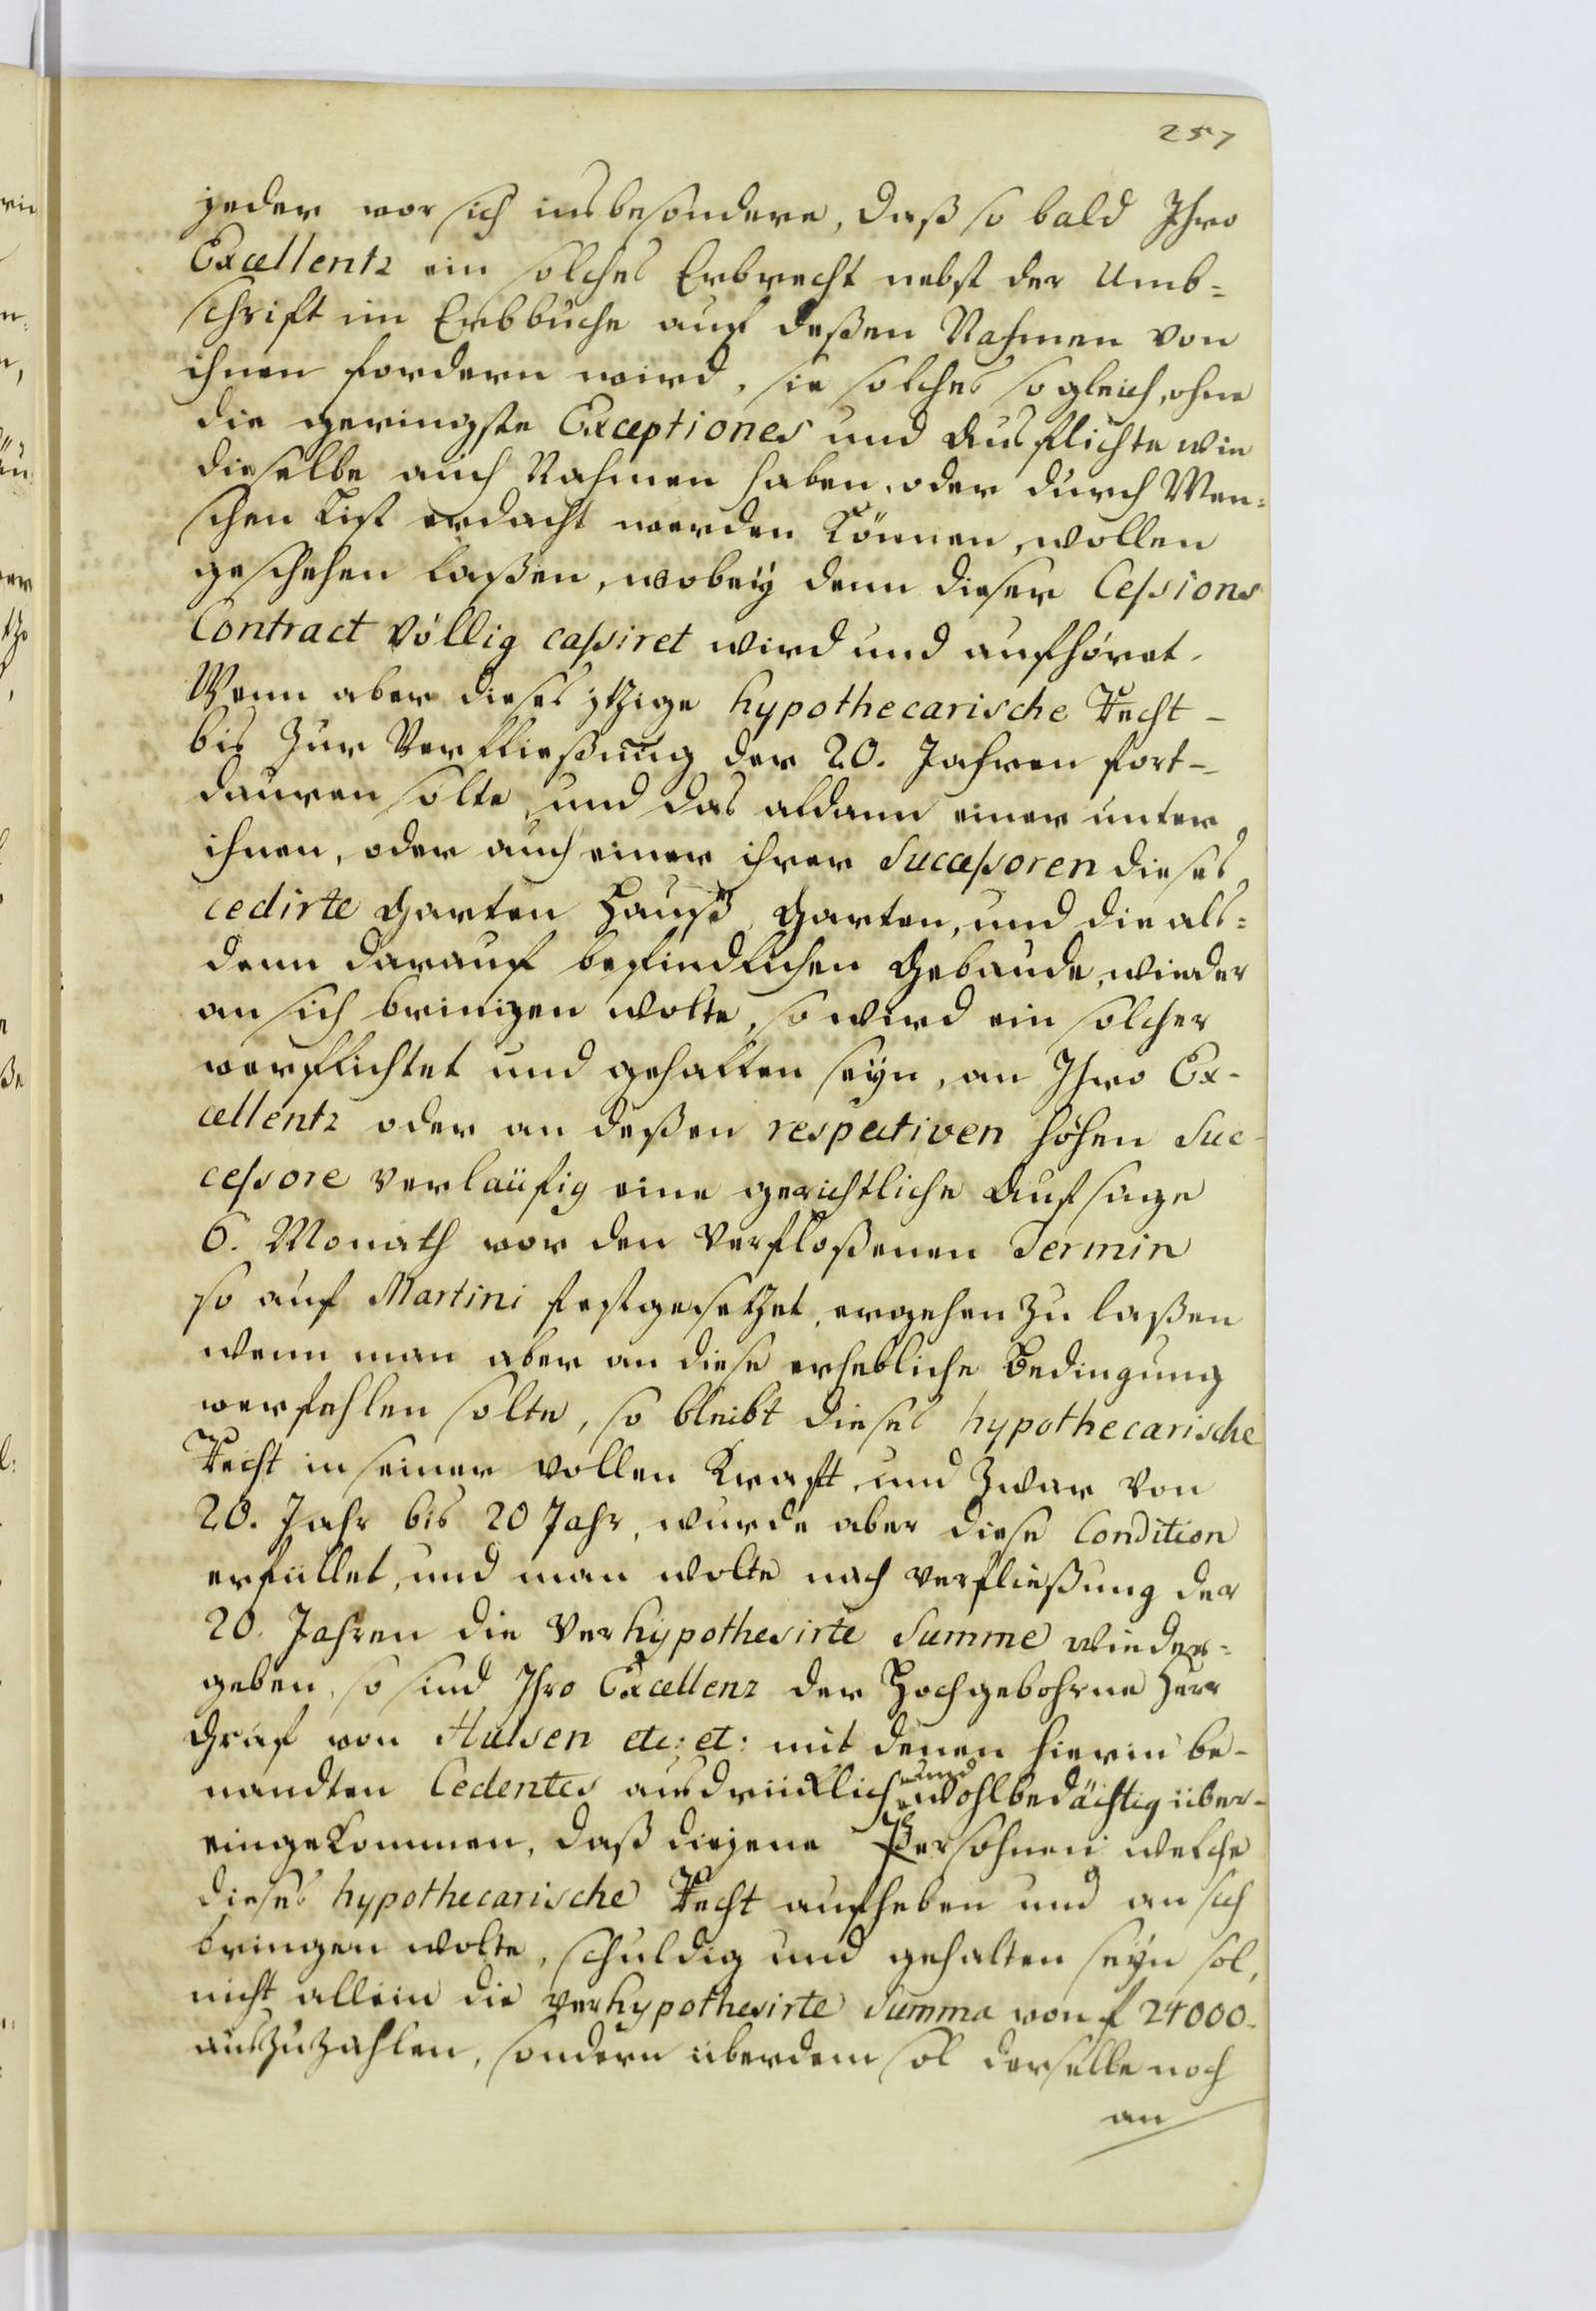 257
jeder vor sich insbesondere, daß so bald Ihro
Excellentz ein solches Erbrecht nebst der Umb-
schrift im Erbbuche auf deßen Nahmen von
ihnen fordern wird, sie solches sogleich, ohne
die geringste Exceptiones und Ausflichte wie
dieselbe auch Nahmen haben, oder durch Men-
schen List erdacht werden können, wollen
geschehen laßen, wobeÿ denn dieser Cessions
Contract völlig cassiret wird und aufhöret.
Wenn aber dieses itzige hypothecarische Recht -
bis zur Verfließung der 20. Jahren fort-
dauren solte, und das aldann einer unter
ihnen, oder auch einer ihrer Successoren dieses
cedirte Garten Hauß, Garten, und die als-
denn darauf befindlichen Gebaude, wieder
an sich bringen wolte, so wird ein solcher
verpflichtet und gehalten seÿn, an Ihro Ex-
cellentz oder an deßen respectiven hohen Suc-
cessore verlaüfig eine gerichtliche Aufsage
6. Monath vor den verfloßenen Termin
so auf Martini festgesetzet, ergehen zu laßen
wenn man aber an diese erhebliche Bedingung
verfehlen solte, so bleibt dieses hypothecarische
Recht in seiner vollen Krafft, und zwar von
20. Jahr bis 20 Jahr, wurde aber diese Condition
erfüllet, und man wolte nach verfließung der
20. Jahren die verhypothesirte Summe wieder-
geben, so sind Ihro Excellenz der Hochgebohrne Herr
Graf von Hulsen etc: et: mit denen hierin be-
nandten Cedentes ausdrücklich und wohlbedächtig über-
eingekommen, daß diejene Persohnen welche
dieses hypothecarische Recht aufheben und an sich
bringen wolte, schuldig und gehalten seÿn sol,
nicht allein die verhypothesirte Summa von f 24000.
auszuzahlen, sondern überdem sol derselbe noch
an